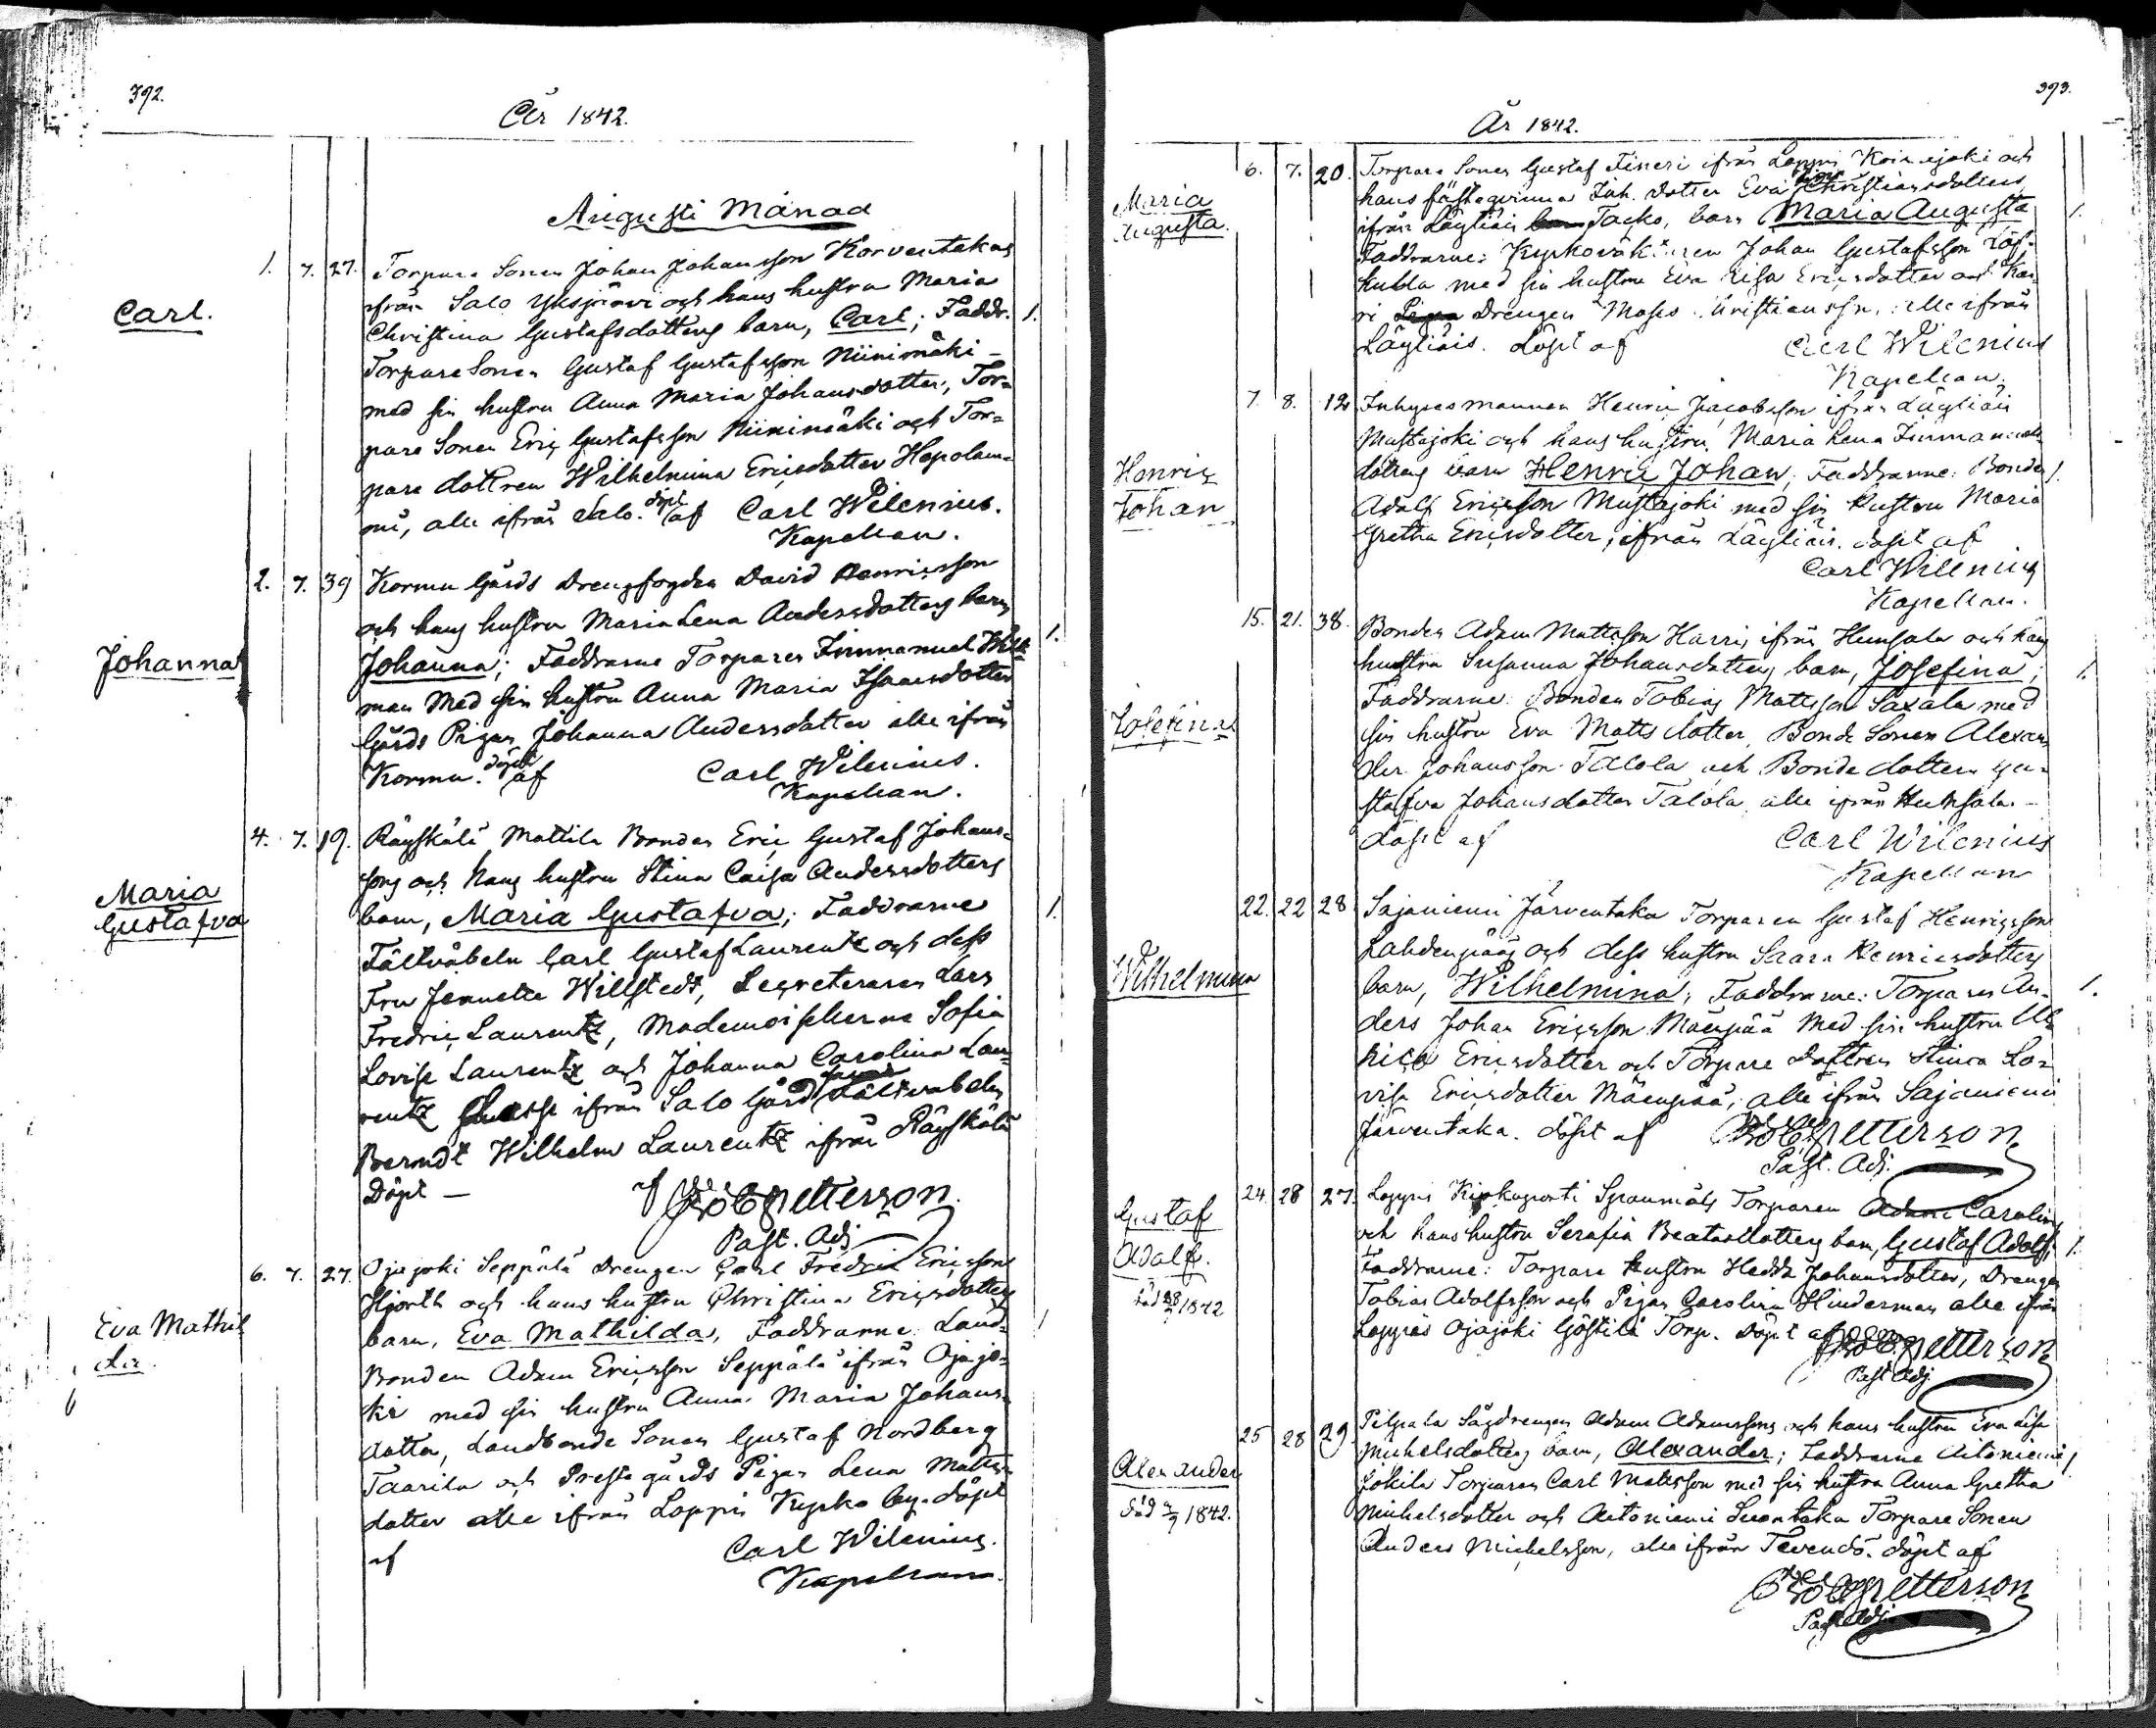 392.
År 1842.
Augusti Månad
Carl.
1. 7. 27. Torpare Sonen Johan Johansson Korventakas
ifrån Salo Yksjärvi och hans hustru Maria
Christina Gustafsdotters barn, Carl; Faddr. 1.
Torpare Sonen Gustaf Gustafsson Niinimäki
med sin hustru Anna Maria Johansdotter, Tor=
pare Sonen Eric Gustafsson Niinimäki och Tor=
pare dottren Wilhelmina Ericsdotter Hepolam=
mi, alla ifrån Salo. döpt af Carl Wilenius.
Kapellan.
Johanna
2. 7. 39 Kormu Gårds Drengfogden David Henricsson
och hans hustru Maria Lena Andersdotters barn
Johanna; Faddrarne Torparen Immanuel Wilk= 1.
man Med sin hustru Anna Maria Isaacsdotter
Gårds Pigan Johanna Andersdotter alla ifrån
Kormu. döpt af Carl Wilenius.
Kapellan.
Maria
Gustafva
4. 7. 19. Räyskälä Mattila Bonden Eric Gustaf Johans=
sons och hans hustru Stina Caisa Andersdotters
barn, Maria Gustafva; Faddrarne 1.
Fältväbeln Carl Gustaf Laurentz och dess
Fru Jennette Willstedt, Secreteraren Lars
Fredric Laurentz, Mademoisellerna Sofia
Lovisa Laurentz och Johanna Carolina Lau=
rentz ifrån Salo Gård Fältväbeln
Berndt Wilhelm Laurentz ifrån Räyskälä
Döpt — af Petterson.
Past. Adj
Eva Mathil
da.
6. 7. 27. Ojajoki Seppälä Drengen Carl Fredric Ericsson
Hjorth och hans hustru Christina Ericsdotters
barn, Eva Mathilda, Faddrarne Land= 1
Bonden Adam Ericsson Seppälä ifrån Ojajo=
ki med sin hustru Anna Maria Johans=
dotter, Landbonde Sonen Gustaf Nordberg
Taarila och Prestegårds Pigan Lena Matts
dotter alla ifrån Loppis Kyrko by. döpt
af Carl Wilenius.
Kapellan.
393.
År 1842.
Maria
Augusta.
6. 7. 20. Torpare Sonen Gustaf ifrån Loppis Koirajoki och
hans fästeqvinna Inh. dotter Eva Christiansdotters
ifrån Läyliäis Tacko, barn Maria Augusta 1.
Faddrarne: Johan Gustafsson
med sin hustru Eva Lisa Ericsdotter och
Drengen Moses Christiansson, alla ifrån
Läyliäis. döpt af Carl Wilenius
Kapellan.
Henric
Johan
7. 8. 12 Inhyses mannen Henric Jacobsson ifrån Läyliäis
Mustajoki och hans hustru Maria Lena Immanuels
dotters barn Henric Johan, Faddrarne: Bonden 1.
Adolf Ericsson Mustajoki med sin hustru Maria
Gretha Ericsdotter, ifrån Läyliäis. döpt af
Carl Wilenius
Kapellan.
Josefina
15. 21. 38. Bonden Adam Mattsson Harris ifrån Hunsala och hans
hustru Susanna Johansdotters barn, Josefina; 1.
Faddrarne: Bonden Tobias Mattsson Saxala med
sin hustru Eva Matts dotter, Bonde Sonen Alexan
der Johansson Talola och Bonde dottern Gu=
stafva Johansdotter Talola, alla ifrån Hunsala. —
döpt af Carl Wilenius
Kapellan
Wilhelmina
22. 22 28 Sajaniemi Järventaka Torparen Gustaf Henricsson
Lahdenpääs och dess hustru Saara Henricsdotters
barn, Wilhelmina; Faddrarne: Torparen An= 1.
ders Johan Ericsson Mäenpää Med sin hustru Ul=
rica Ericsdotter och Torpare Dottren Stina Lo=
visa Ericsdotter Mäenpää, alla ifrån Sajaniemi
Järventaka. döpt af Petterson
Past. Adj.
Gustaf
Adolf.
död 1842
24. 28 27. Loppis Torparen Adam Carolins
och hans hustru Serafia Beatasdotters barn, Gustaf Adolf; 1.
Faddrarne: Torpare hustru Hedda Johansdotter, Drengen
Tobias Adolfsson och Pigan Carolina Hinderman alla ifrån
Loppis Ojajoki Göstilä Torp. Döpt af Petterson
Past Adj.
Alexander
död 1842.
25 28 29 Pilpala Sågdrengen Adam Adamssons och hans hustru Eva Lisa
Michelsdotters barn, Alexander; Faddrarne 1
Jokila Torparen Carl Mattsson med sin hustru Anna Gretha
Michelsdotter och Torpare Sonen
Anders Michelsson, alla ifrån Tevendö. döpt af
Petterson
Past Adj.